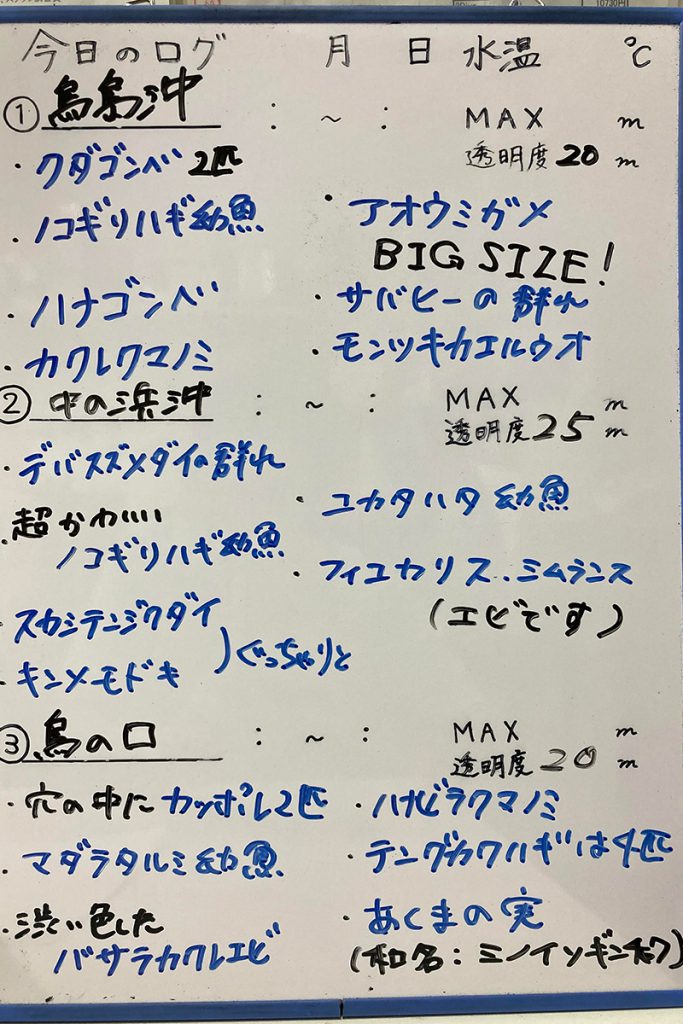 今日のログ 月 日 水温 ℃
① 烏島沖 : ~ : MAX m
透明度 20 m
・クダゴンベ 2匹
・ノコギリハギ幼魚
・ハナゴンベ
・カクレクマノミ
・アオウミガメ
BIG SIZE!
・サバヒーの群れ
・モンツキカエルウオ
② 中の浜沖 : ~ : MAX m
透明度 25 m
・デバスズメダイの群れ
・超かわいい
ノコギリハギ幼魚
・スカシテンジクダイ
・キンメモドキ
)ぐっちゃりと
・ユカタハタ 幼魚
・フィコカリス.シムランス
(エビです)
③ 烏の口 : ~ : MAX m
透明度 20 m
・穴の中に カッポレ2匹
・マダラタルミ幼魚
・渋い色した
バサラカクレエビ
・ハナビラクマノミ
・テングカワハギは4匹
・あくまの実
(和名:ミノイソギンチャク)